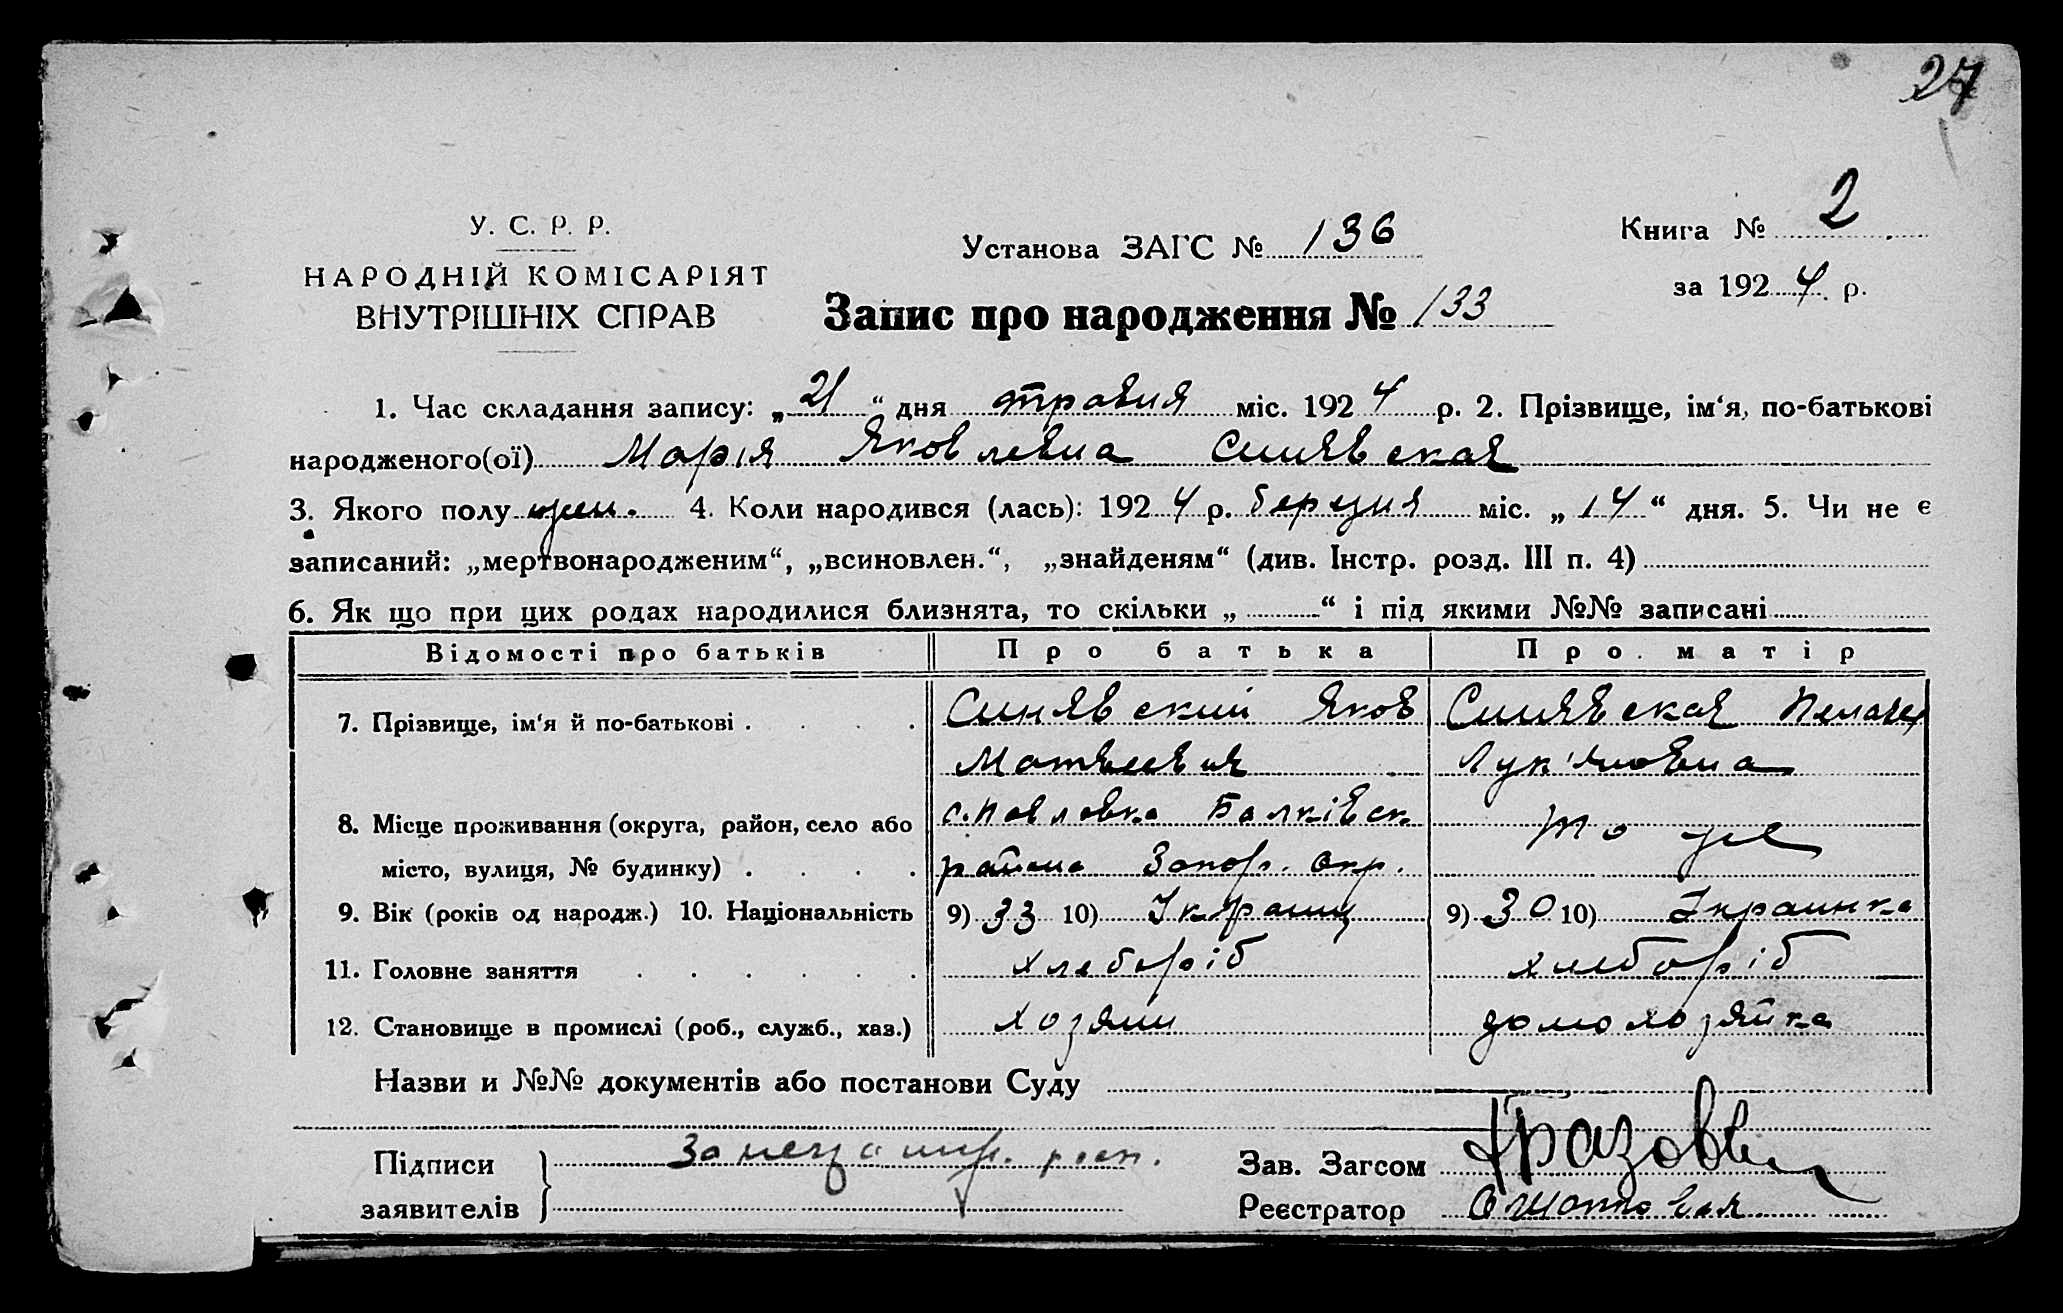 27
У. С. Р. Р.
НАРОДНІЙ КОМІСАРІЯТ
ВНУТРІШНІХ СПРАВ
Установа ЗАГС № 136
Книга № 2
за 1924 р.
Запис про народження № 133
1. Час складання запису: „21“ дня травня міс. 1924 р. 2. Прізвище, ім‘я, по-батькові
народженого(ої) Марія Яковлевна Синявская
3. Якого полу жен. 4. Коли народився (лась): 1924 р. березня міс. „14“ дня. 5. Чи не є
записаний: „мертвонародженим“, „всиновлен.“, „знайденям“ (див. Інстр. розд. III п. 4)
6. Як що при цих родах народилися близнята, то скільки „ “ і під якими №№ записані
Відомості про батьків Про батька Про матір
7. Прізвище, ім‘я й по-батькові Синявский Яков Синявская Пелагея
Матвеевич Лук'яновна
8. Місце проживання (округа, район, село або с. Павловка Балківск. То же
місто, вулиця, № будинку) района Запор. Окр.
9. Вік (років од народж.) 10. Національність 9) 33 10) Украинц 9) 30 10) Украинка
11. Головне заняття хлебороб хлебороб
12. Становище в промислі (роб., служб., хаз.) хозяин домохозяйка
Назви и №№ документів або постанови Суду
Підписи За
заявителів
Зав. Загсом
Реєстратор